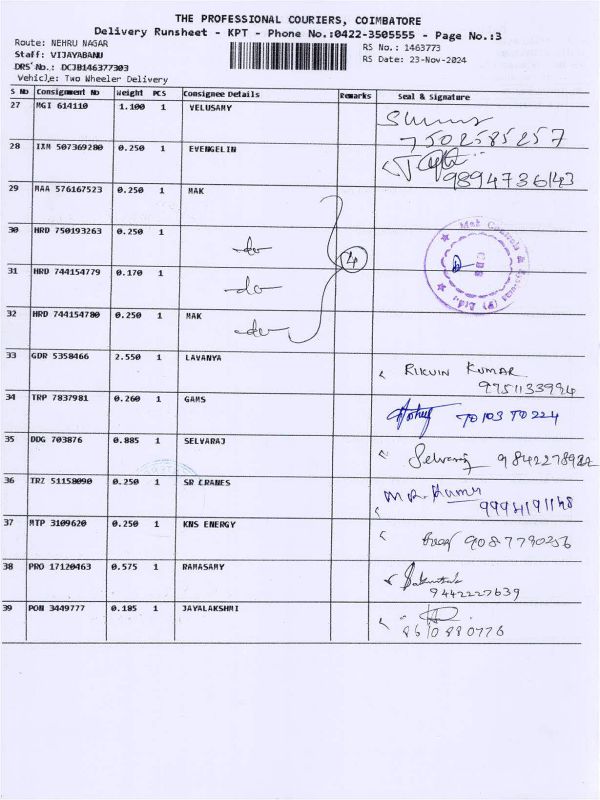 THE PROFESSIONAL COURIERS, COIMBATORE
Delivery Runsheet - KPT - Phone No.:0422-3505555 - Page No.:3
Route: NEHRU NAGAR
RS No.: 1463773
Staff: VIJAYABANU
RS Date: 23-Nov-2024
DRS No.: DCJB146377303
Vehicle: Two Wheeler Delivery
S No Consignment No Weight PCS Consignee Details Remarks Seal & Signature
27 MGI 614110 1.100 1 VELUSAMY
7502585257
28 IXM 507369280 0.250 1 EVENGELIN
9894736143
29 MAA 576167523 0.250 1 MAK
30 HRD 750193263 0.250 1 -do-
4
31 HRD 744154779 0.170 1 -do-
32 HRD 744154780 0.250 1 MAK
-do-
33 GDR 5358466 2.550 1 LAVANYA KUMAR
9751133994
34 TRP 7837981 0.260 1 GAMS
35 DDG 703876 0.885 1 SELVARAJ Selvaraj
36 IRZ 51158090 0.250 1 SR CRANES
37 MTP 3109620 0.250 1 KNS ENERGY 9087790256
38 PRO 17120463 0.575 1 RAMASAMY
9442227639
39 PON 3449777 0.185 1 JAYALAKSHMI
8610880776